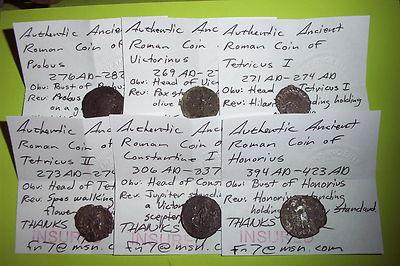 Authentic Anc
Roman Coin of
Probus
276 AD-282
Obv: Bust of Probus
Rev: Probus
on a
Authentic Anc
Roman Coin
Victorinus
269 AD-27
Obv: Head of Vic
Rev: Pax st
olive b
Authentic Ancient
Roman Coin of
Tetricus I
271 AD-274 AD
Obv: Head Tetricus I
Rev: Hilar nding holding
Authentic Anci
Roman Coin of
Tetricus II
273 AD-274
Obv: Head of Tet
Rev: Spes walking
flower
THANKS
INSURED
fn7@msn.com
Authentic Anci
Roman Coin of
Constantine I
306 AD-337
Obv: Head of Cons
Rev: Jupiter standi
a Victor
scepter
THANKS
INSURED
fn7@msn.com
Authentic Ancient
Roman Coin of
Honorius
394 AD-423 AD
Obv: Bust of Honorius
Rev: Honorius standing
holding standard
THANKS
INSURED
fn7@msn.com